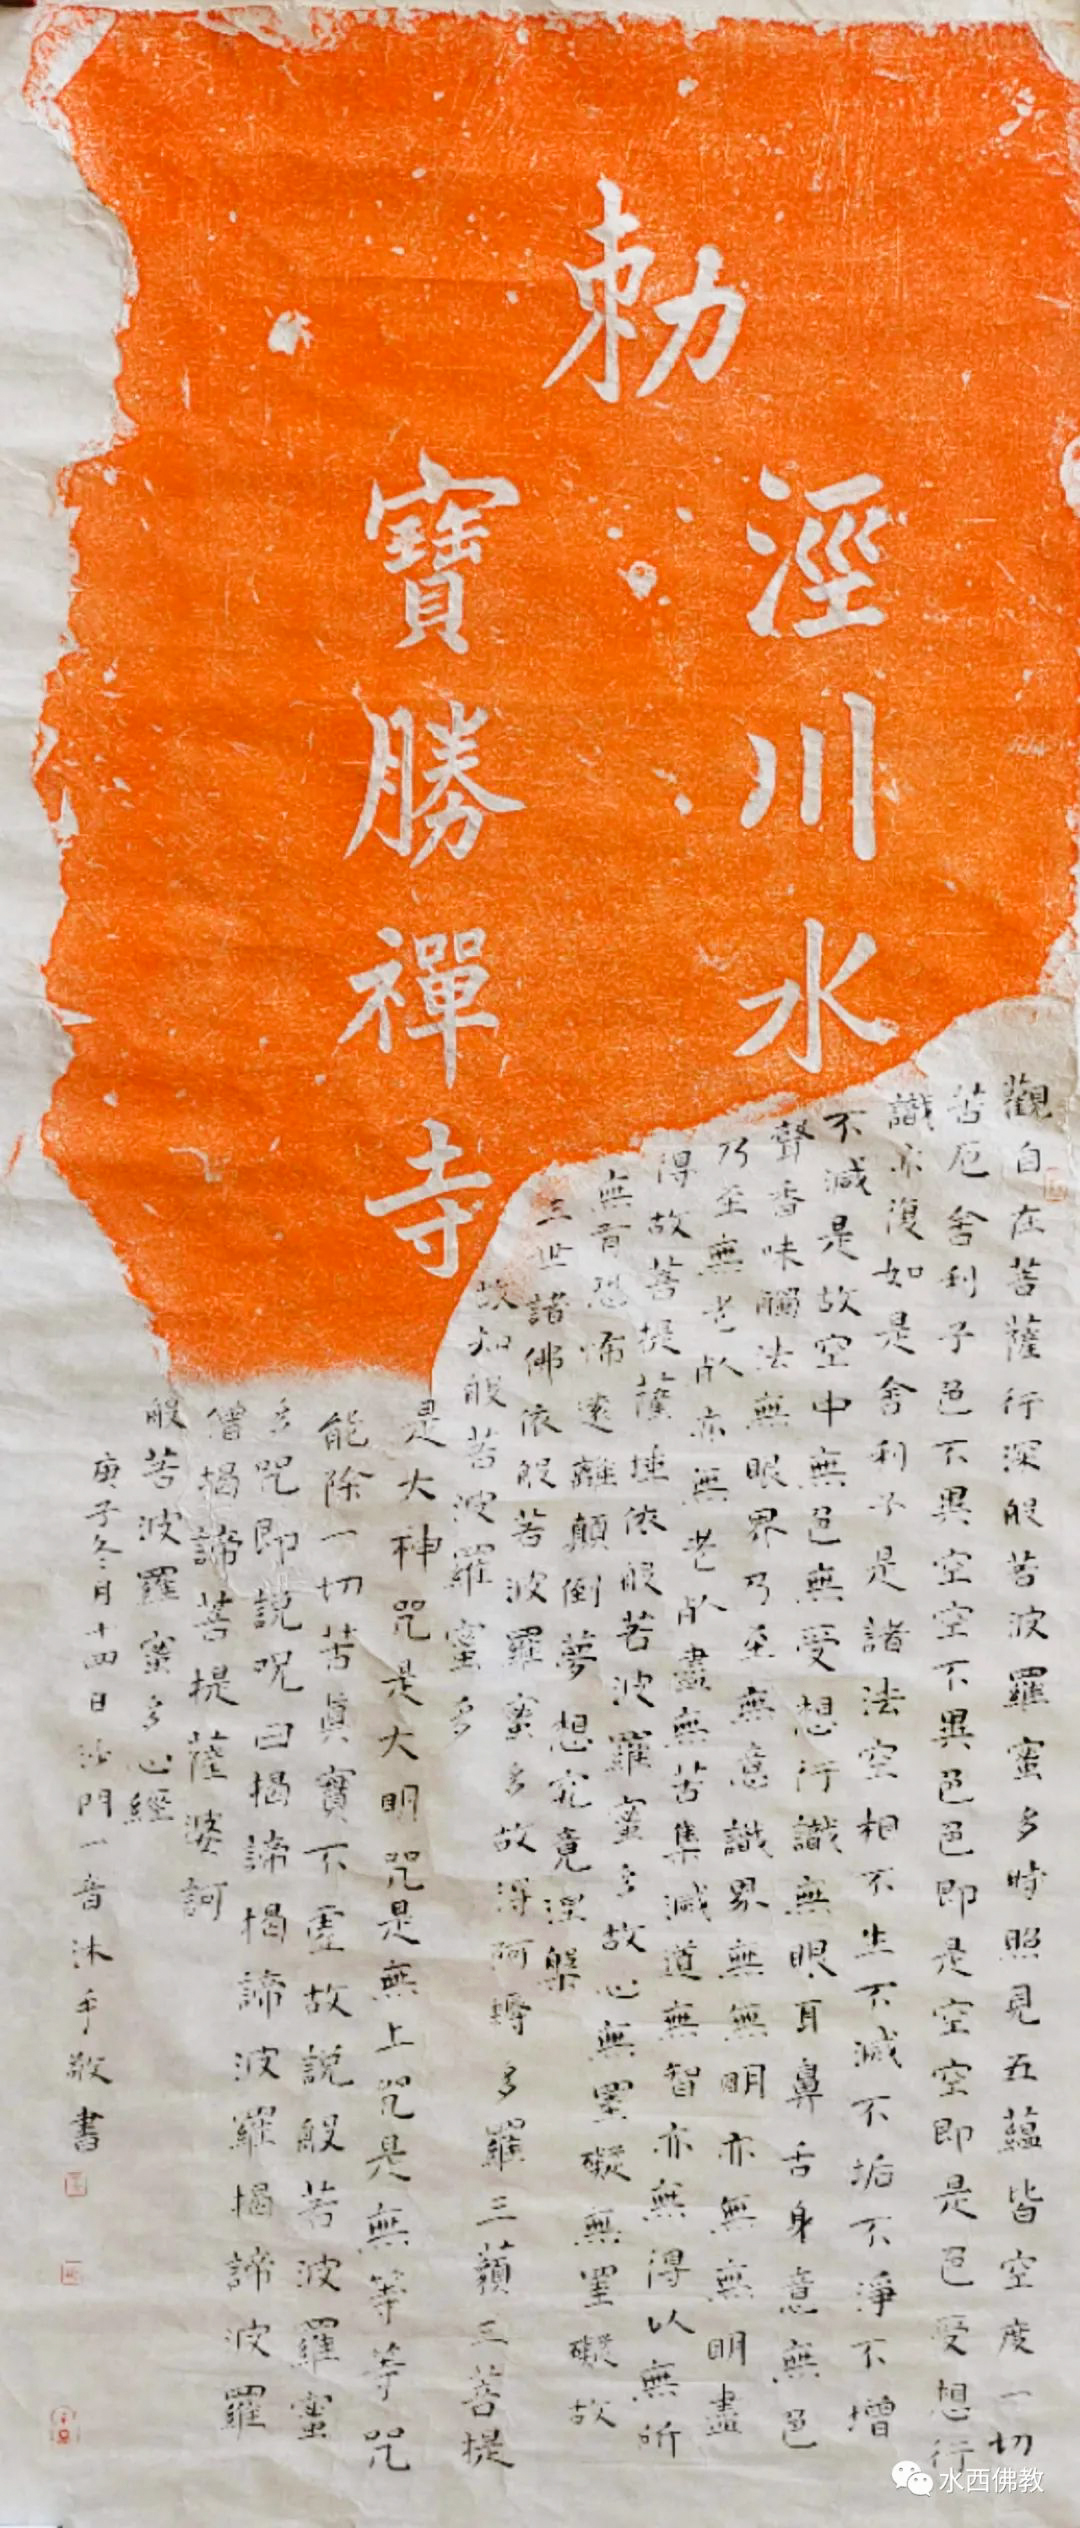 勅
涇川水
寶勝禪寺
觀自在菩薩行深般若波羅蜜多時照見五蘊皆空度一切
苦厄舍利子色不異空空不異色色即是空空即是色受想行
識亦復如是舍利子是諸法空相不生不滅不垢不淨不增
不減是故空中無色無受想行識無眼耳鼻舌身意無色
聲香味觸法無眼界乃至無意識界無無明亦無無明盡
乃至無老死亦無老死盡無苦集滅道無智亦無得以無所
得故菩提薩埵依般若波羅蜜多故心無罣礙無罣礙故
無有恐怖遠離顛倒夢想究竟涅槃
三世諸佛依般若波羅蜜多故得阿耨多羅三藐三菩提
故知般若波羅蜜多
是大神咒是大明咒是無上咒是無等等咒
能除一切苦真實不虛故説般若波羅蜜
多咒即説呪曰揭諦揭諦波羅揭諦波羅
僧揭諦菩提薩婆訶
般若波羅蜜多心經
庚子冬月十四日沙門一音沐手敬書
水西佛教